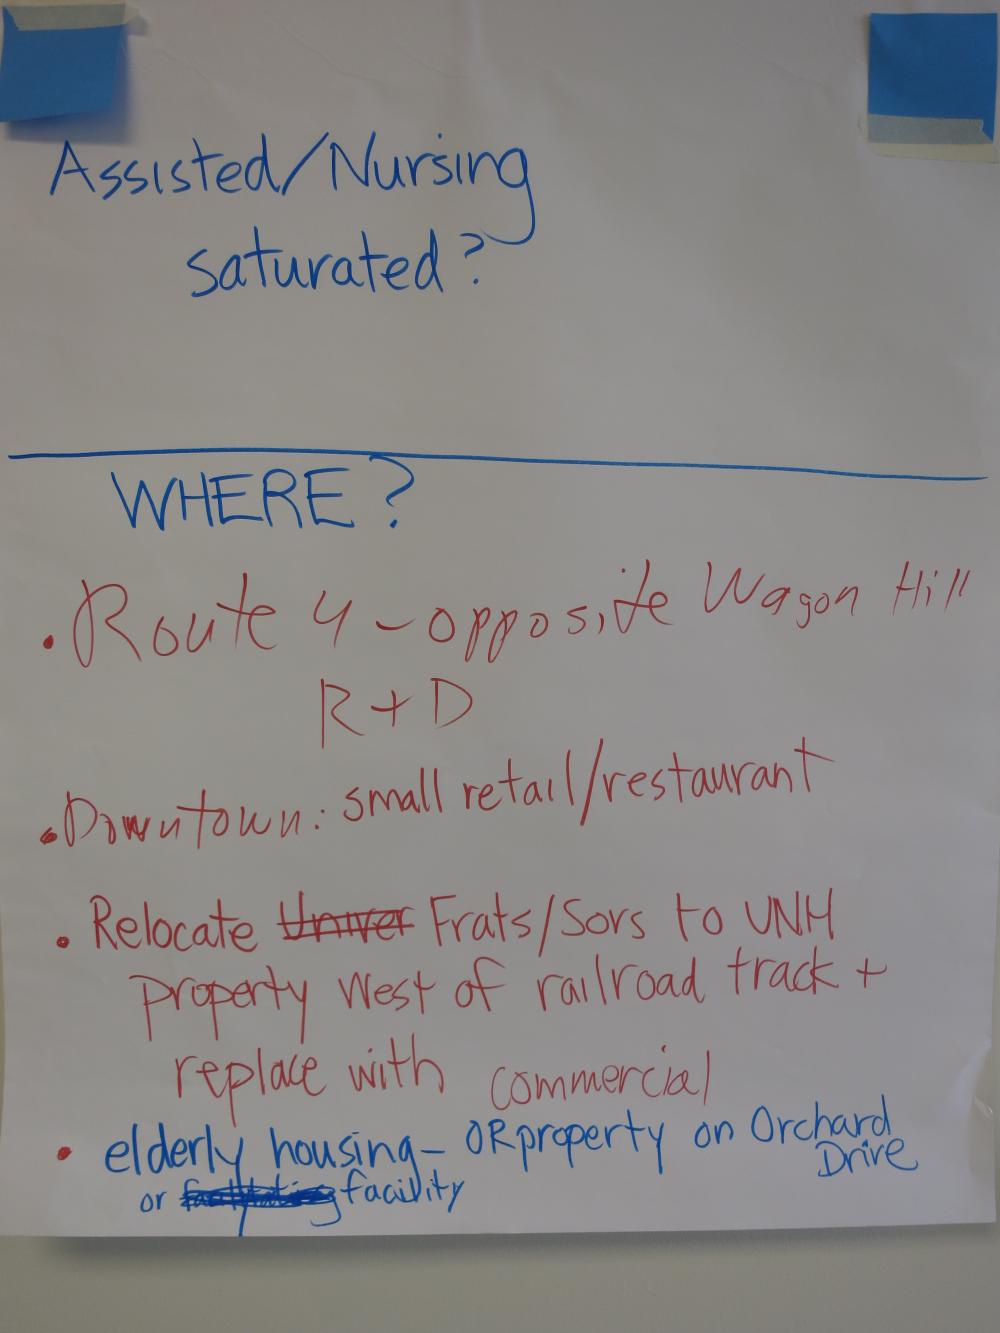 Assisted/Nursing
saturated?
WHERE?
• Route 4 - opposite Wagon Hill
R + D
• Downtown: small retail/restaurant
• Relocate Univer Frats/Sors to UNH
property West of railroad track +
replace with commercial
• elderly housing - OR property on Orchard
Drive
or facility